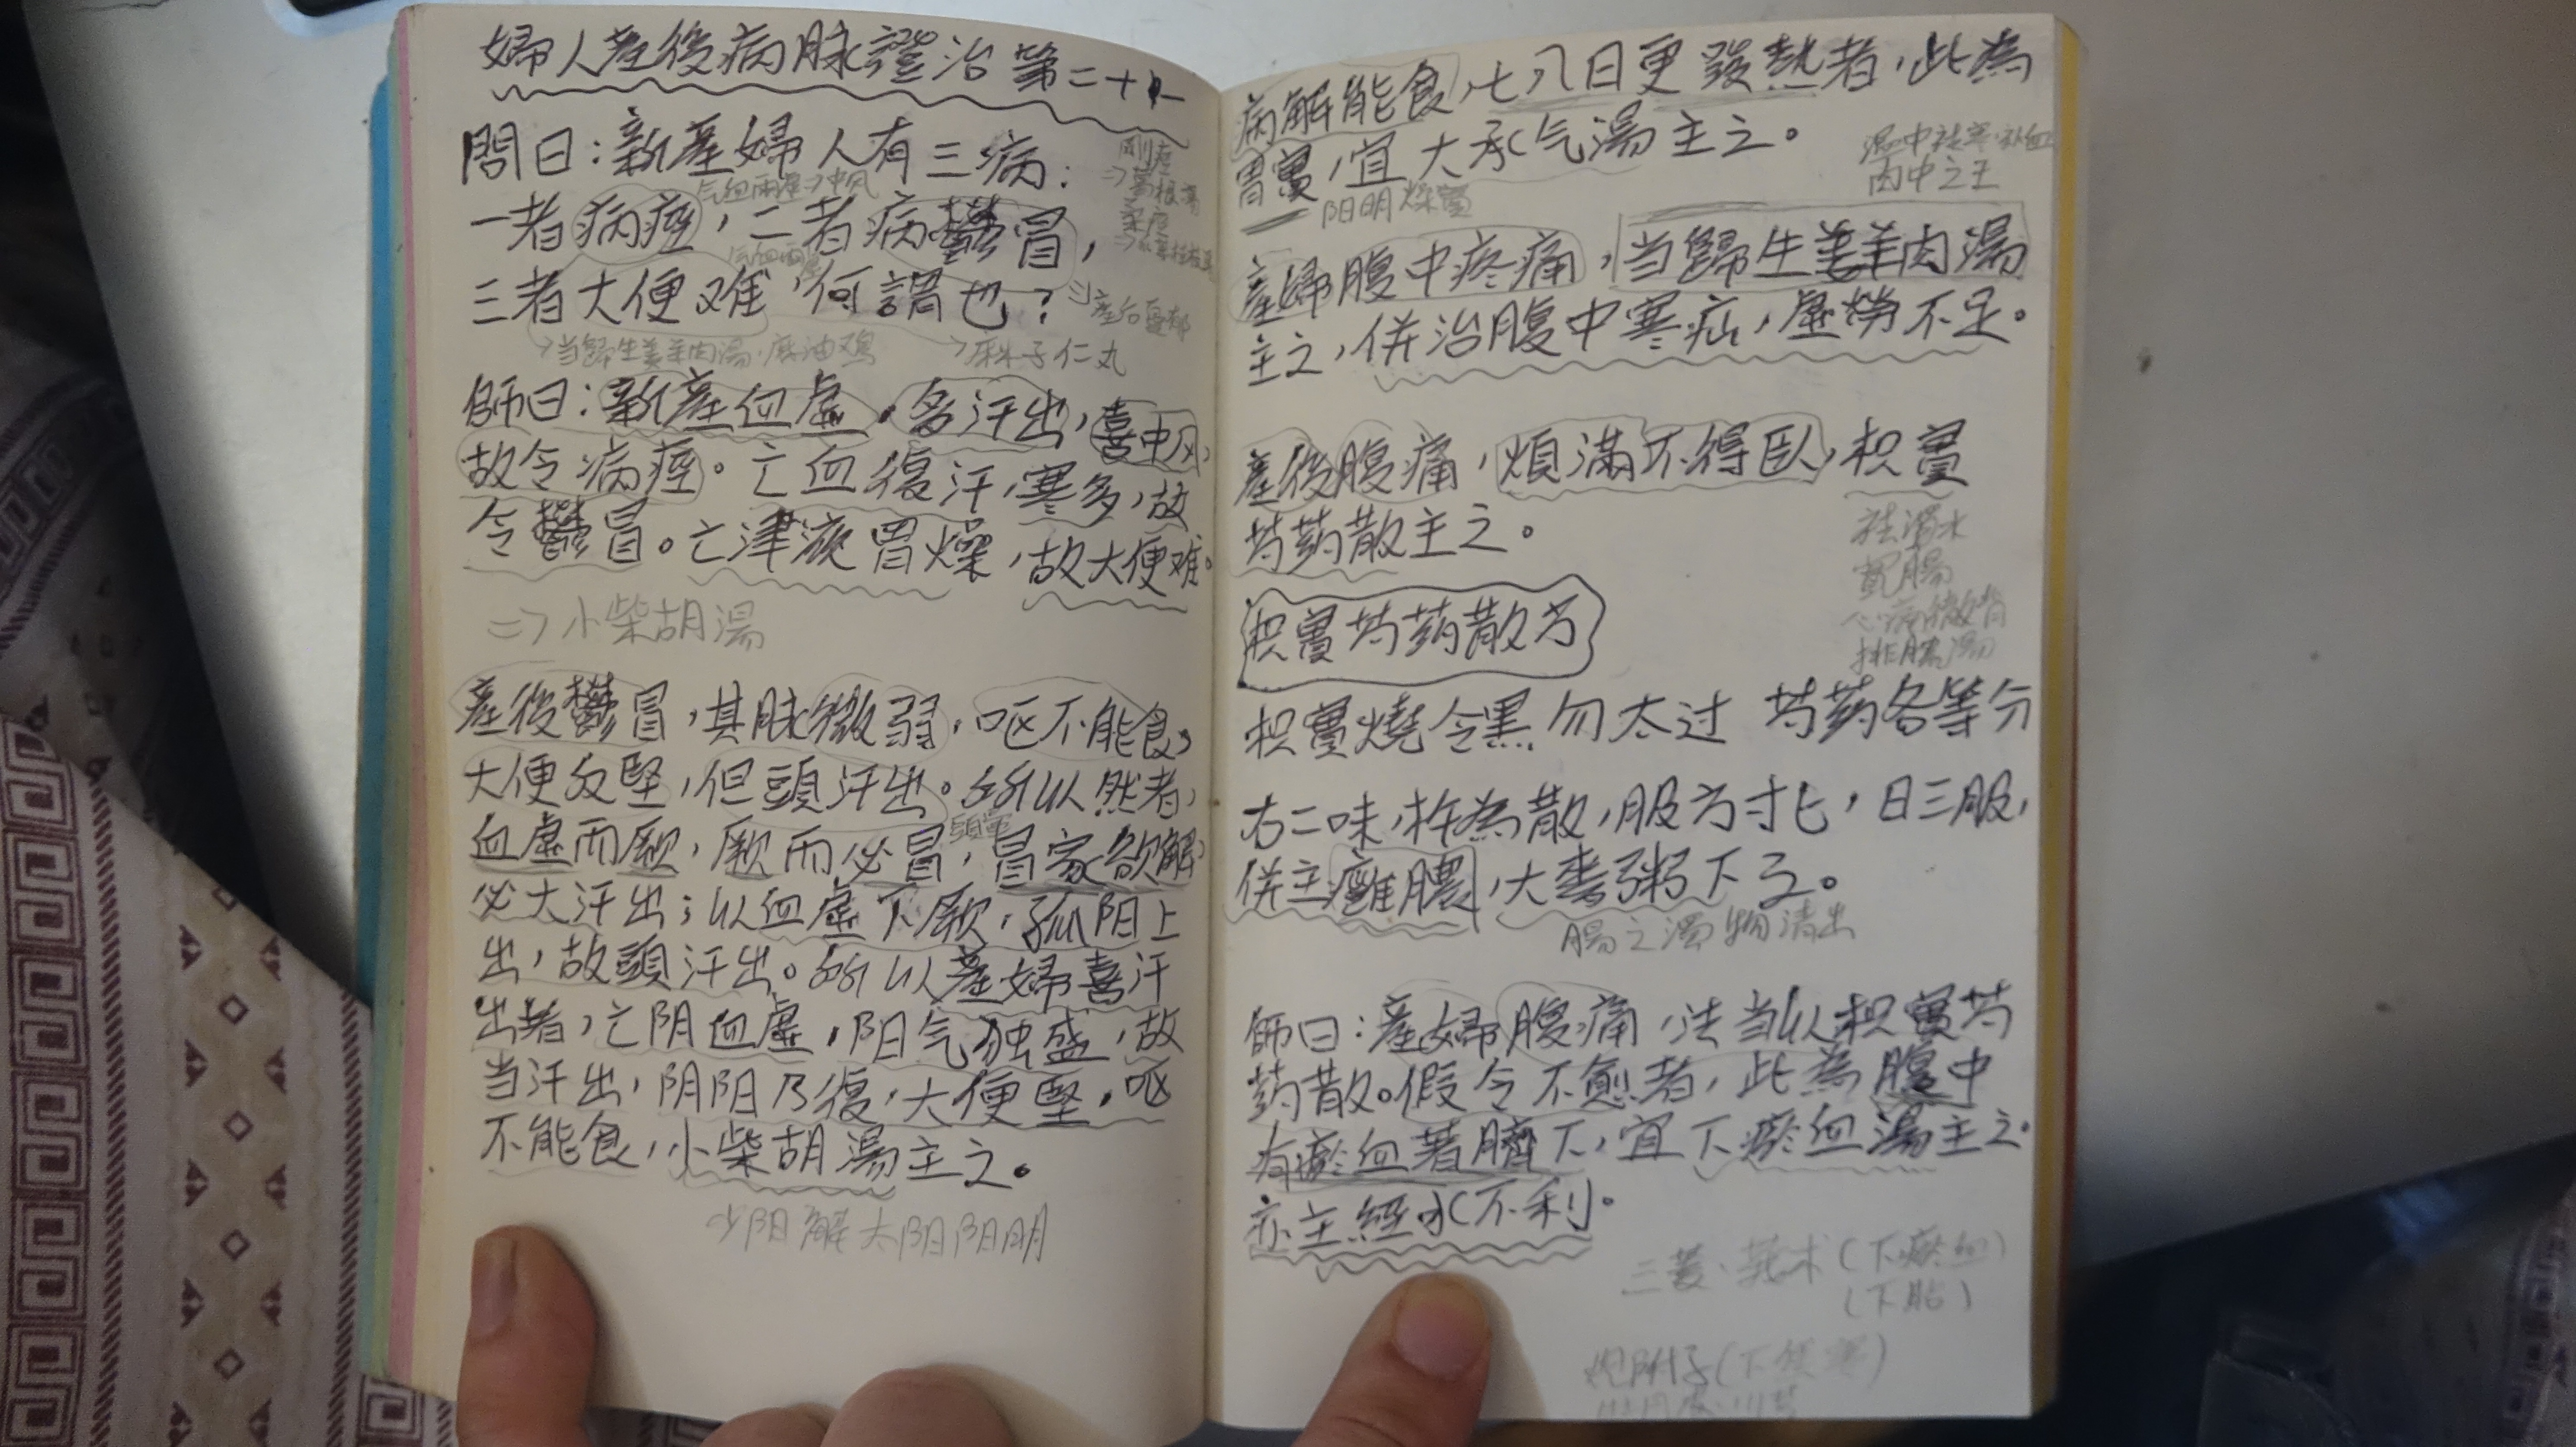 婦人產後病脉證治第二十一
問曰:新產婦人有三病:
气血兩虛→中风
一者病痙,二者病鬱冒,
三者大便难,何謂也?
剛痙
⇒葛根湯
柔痙
⇒产后憂郁
→当歸生姜羊肉湯,麻油鸡
→麻子仁丸
師曰:新產血虛,多汗出,喜中风,
故令病痙。亡血復汗,寒多,故
令鬱冒。亡津液胃燥,故大便难。
⇒小柴胡湯
產後鬱冒,其脉微弱,呕不能食,
大便反堅,但頭汗出。所以然者,
血虛而厥,厥而必冒,冒家欲解,
頭暈
必大汗出;以血虛下厥,孤阳上
出,故頭汗出。所以產婦喜汗
出著,亡阴血虛,阳气独盛,故
当汗出,阴阳乃復,大便堅,呕
不能食,小柴胡湯主之。
少阳解太阳阳明
病解能食,七八日更發熱者,此為
胃實,宜大承气湯主之。
阳明燥實
温中祛寒補血
肉中之王
產婦腹中疼痛,当歸生姜羊肉湯
主之,併治腹中寒疝,虛勞不足。
產後腹痛,煩滿不得臥,枳實
芍药散主之。
祛濁水
實腸
排膿湯
枳實芍药散方
枳實燒令黑勿太过 芍药各等分
右二味,杵為散,服方寸匕,日三服,
併主癰膿,大麥粥下之。
腸之濁物清出
師曰:產婦腹痛,法当以枳實芍
药散。假令不愈者,此為腹中
有瘀血著臍下,宜下瘀血湯主之
亦主經水不利。
三菱·莪术(下瘀血)
(下胎)
炮附子(下積寒)